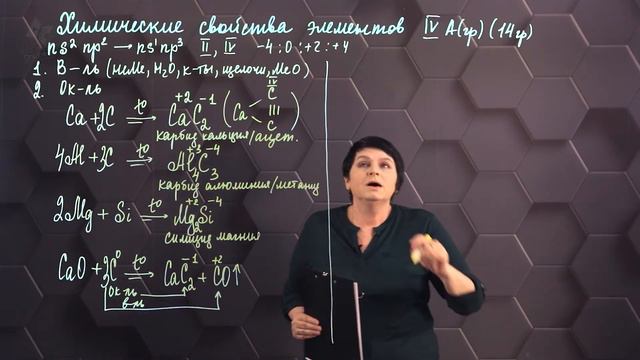 Химические свойства элементов IV А(гр) (14гр)
ns² np² → ns¹np³ II, IV -4; 0; +2; +4
1. В-ль (неМе, H₂O, к-ты, щелочи, МеО)
2. Ок-ль
Ca + 2C =t°=> Ca⁺²C₂⁻¹ (Ca < C ||| C IV)
карбид кальция/ацет.
4Al + 3C =t°=> Al₄⁺³C₃⁻⁴
карбид алюминия/метанид
2Mg + Si =t°=> Mg₂⁺²Si⁻⁴
силицид магния
CaO + 3C⁰ =t°=> CaC₂⁻¹ + C⁺²O↑
ок-ль
в-ль